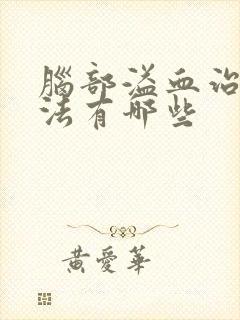 腦部溢血治
法有哪些
黃愛華